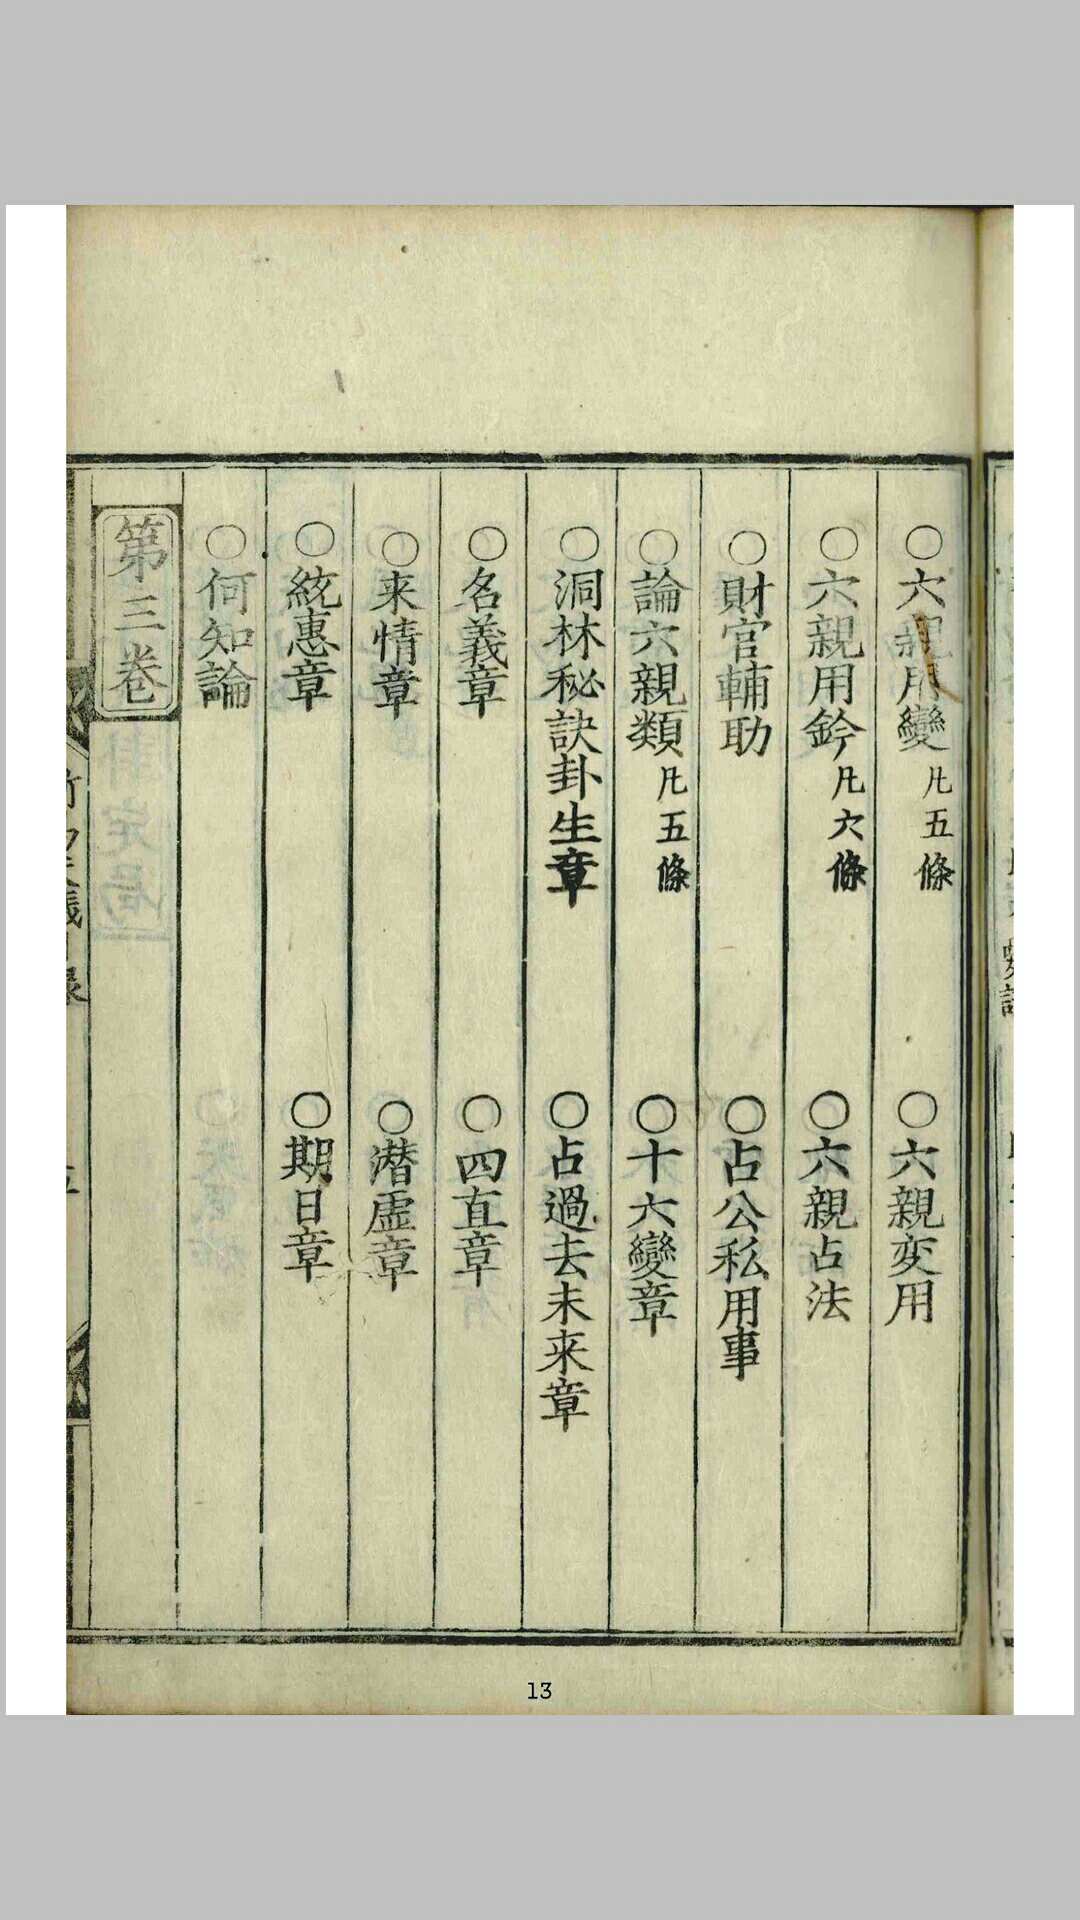 ○六親用變 凡五條 ○六親変用
○六親用鈐 凡六條 ○六親占法
○財官輔助 ○占公私用事
○論六親類 凡五條 ○十六變章
○洞林秘訣卦生章 ○占過去未来章
○名義章 ○四直章
○来情章 ○潜虛章
○統惠章 ○期日章
○何知論
第三卷
13